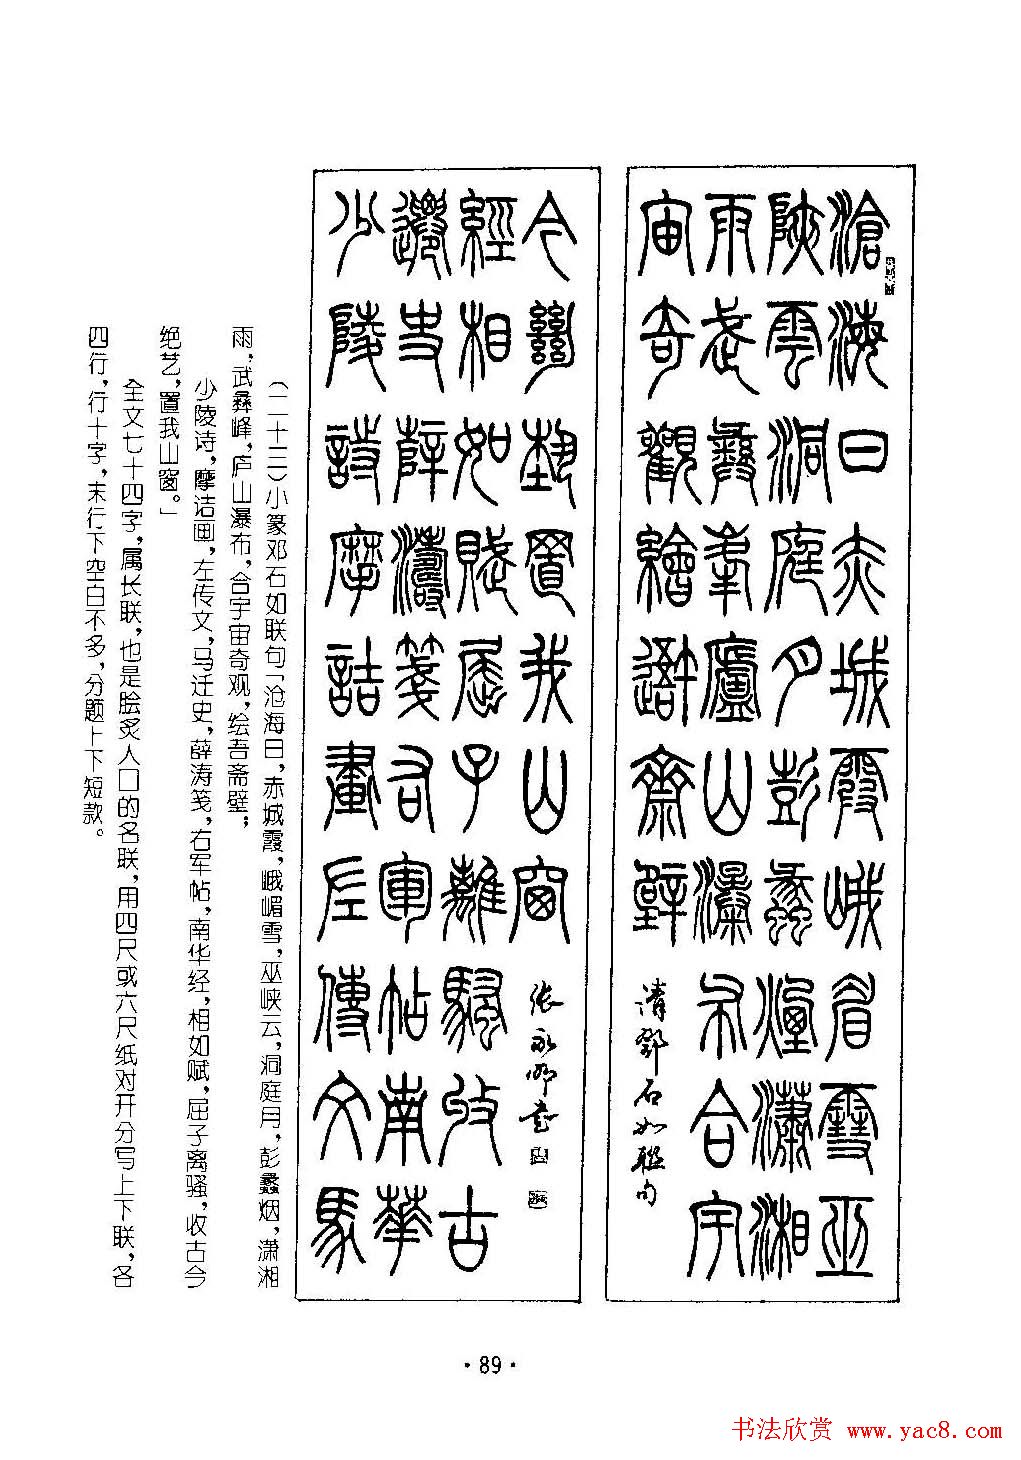 滄海日赤城霞峨眉雪巫
陝雲洞庭月彭蠡煙瀟湘
雨武彝峯廬山瀑布合宇
宙奇觀繪吾齋壁
清鄧石如聯句
少陵詩摩詰畫左傳文馬
遷史薛濤箋右軍帖南華
經相如賦屈子離騷收古
今絕藝置我山窗
张永明书
(二十三)小篆邓石如联句「沧海日,赤城霞,峨嵋雪,巫峡云,洞庭月,彭蠡烟,潇湘
雨,武彝峰,庐山瀑布,合宇宙奇观,绘吾斋壁;
少陵诗,摩洁画,左传文,马迁史,薛涛笺,右军帖,南华经,相如赋,屈子离骚,收古今
绝艺,置我山窗。」
全文七十四字,属长联,也是脍炙人口的名联,用四尺或六尺纸对开分写上下联,各
四行,行十字,末行下空白不多,分题上下短款。
·89·
书法欣赏 www.yac8.com